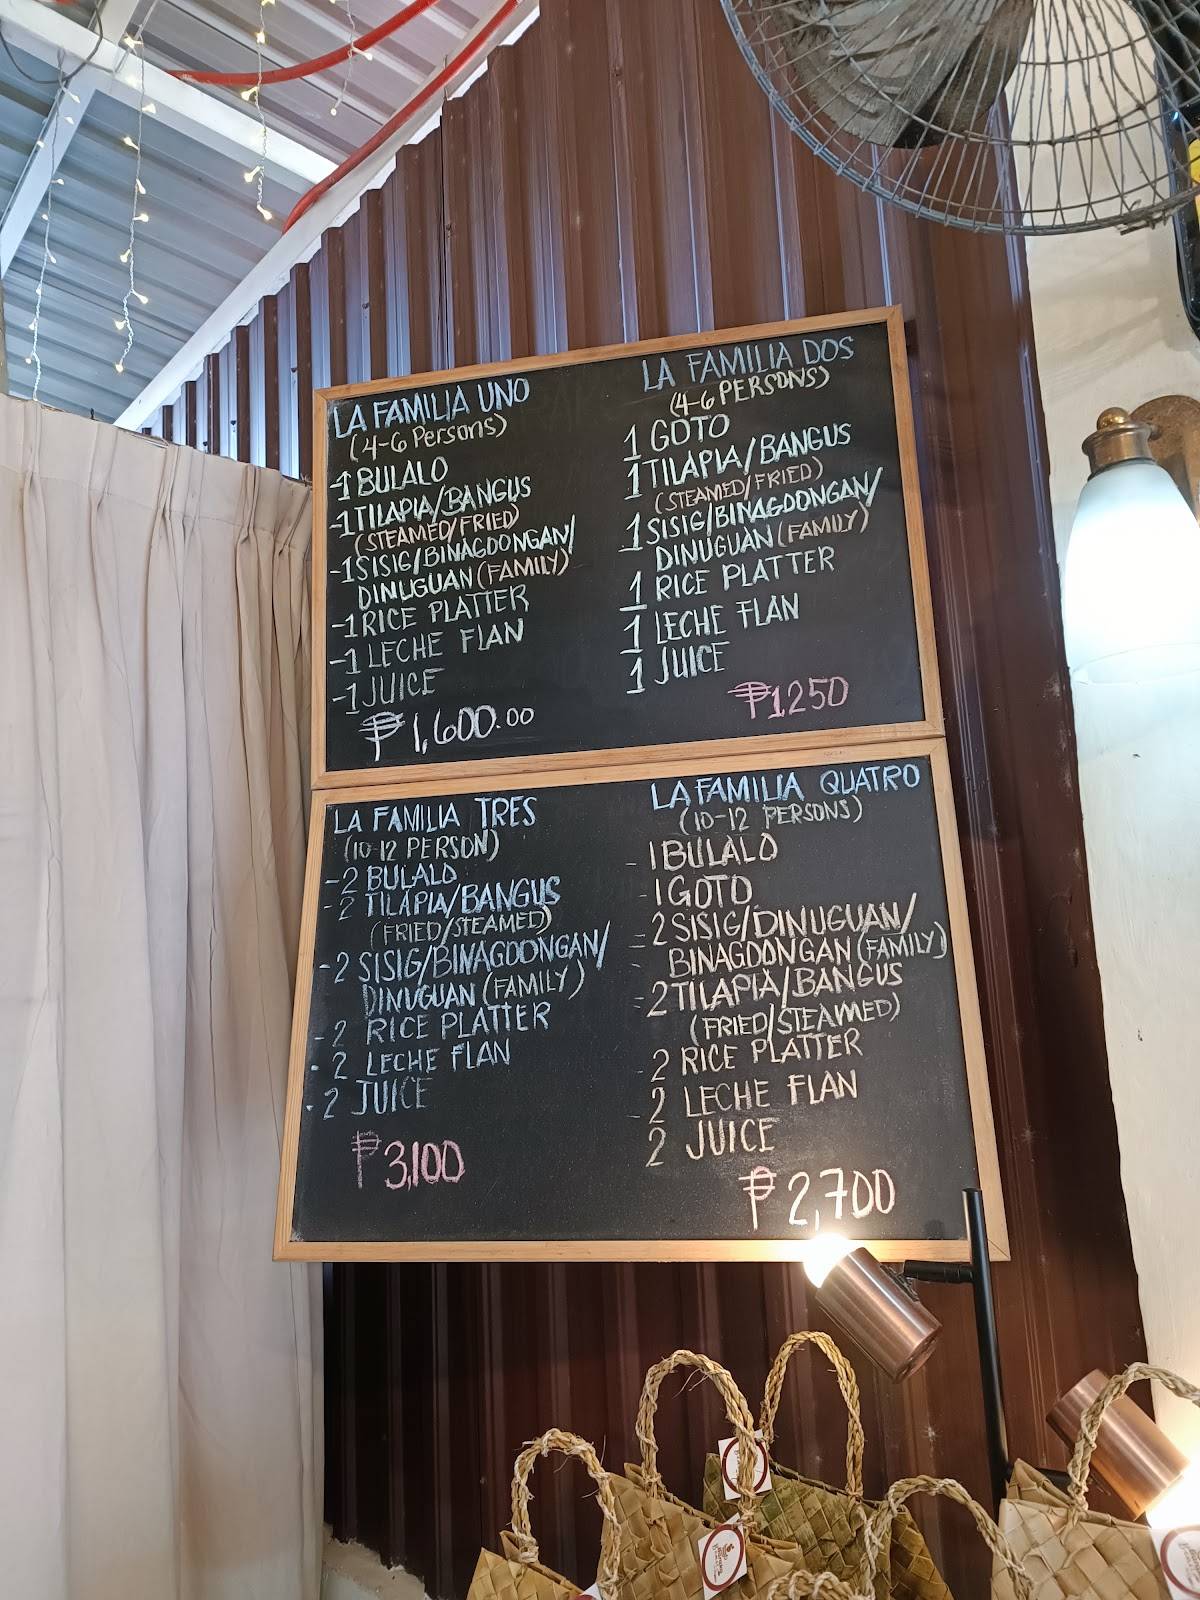 LA FAMILIA UNO
(4-6 Persons)
-1 BULALO
-1 TILAPIA/BANGUS
(STEAMED/FRIED)
-1 SISIG/BINAGOONGAN/
DINUGUAN (FAMILY)
-1 RICE PLATTER
-1 LECHE FLAN
-1 JUICE
₱1,600.00
LA FAMILIA DOS
(4-6 PERSONS)
1 GOTO
1 TILAPIA/BANGUS
(STEAMED/FRIED)
1 SISIG/BINAGOONGAN/
DINUGUAN (FAMILY)
1 RICE PLATTER
1 LECHE FLAN
1 JUICE
₱1250
LA FAMILIA TRES
(10-12 PERSON)
-2 BULALO
-2 TILAPIA/BANGUS
(FRIED/STEAMED)
-2 SISIG/BINAGOONGAN/
DINUGUAN (FAMILY)
-2 RICE PLATTER
-2 LECHE FLAN
-2 JUICE
₱3,100
LA FAMILIA QUATRO
(10-12 PERSONS)
-1 BULALO
-1 GOTO
-2 SISIG/DINUGUAN/
BINAGOONGAN (FAMILY)
-2 TILAPIA/BANGUS
(FRIED/STEAMED)
2 RICE PLATTER
2 LECHE FLAN
2 JUICE
₱2,700